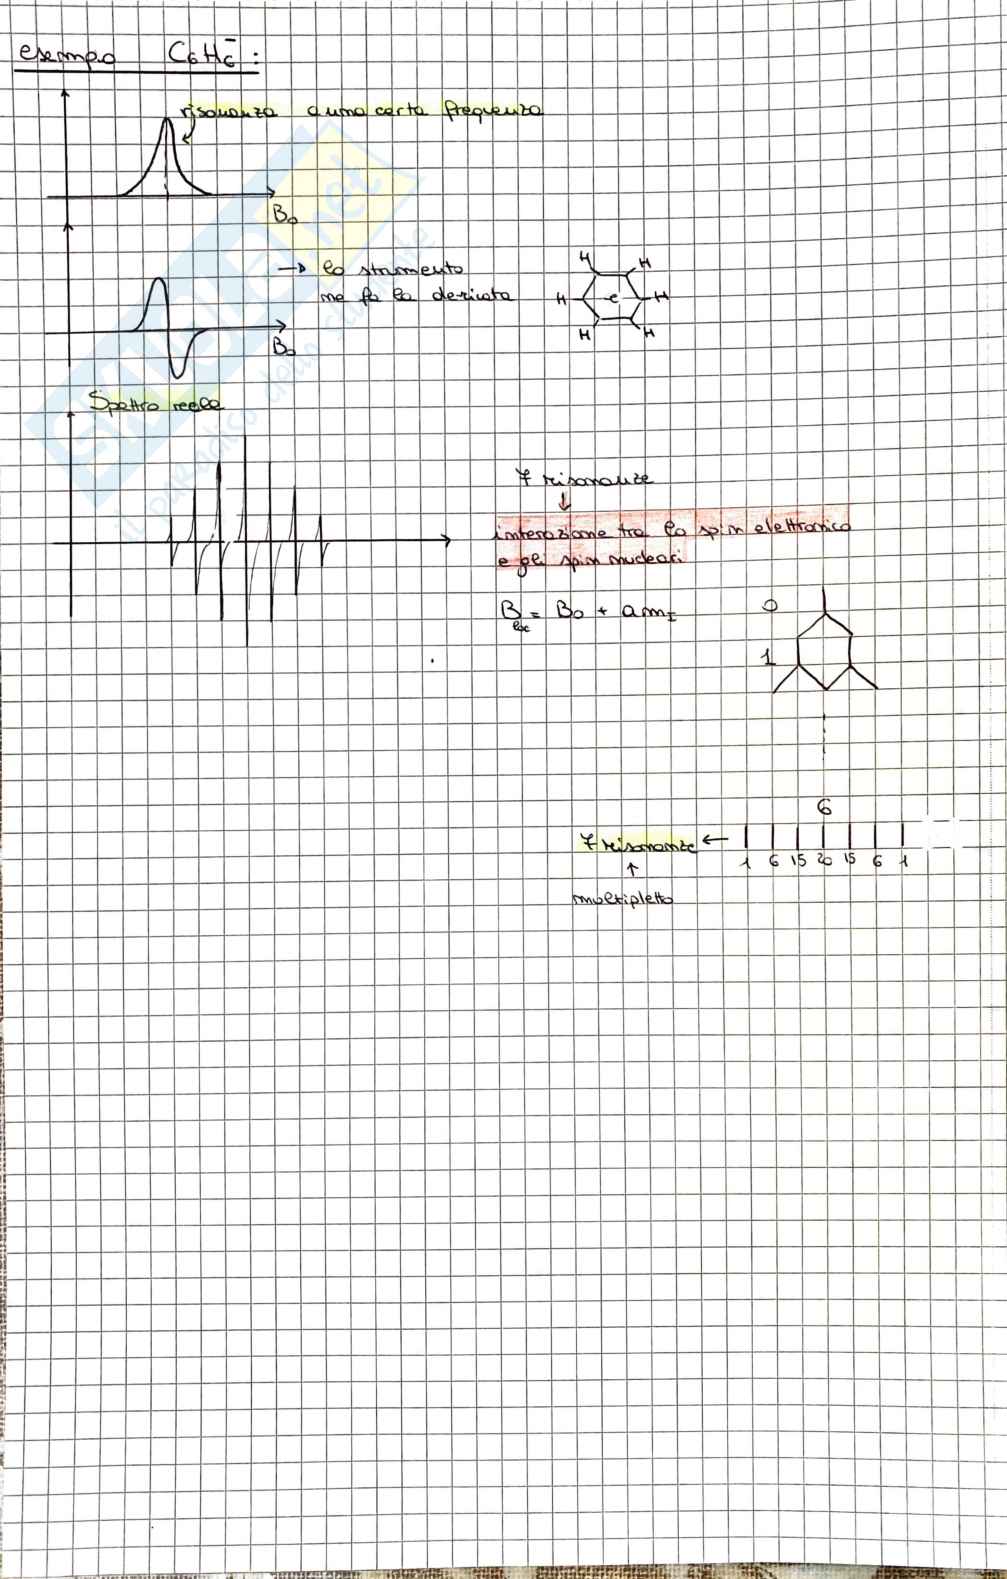 esempio C6H6⁻ :
risonanza a una certa frequenza
B0
→ lo strumento
me fa la derivata
B0
H H
H e⁻ H
H H
Spettro reale
7 risonanze
↓
interazione tra lo spin elettronico
e gli spin nucleari
Bloc = B0 + a mI
0
1
6
7 risonanze ←
1 6 15 20 15 6 1
↑
multipletto
SKUOLA.net
il paradiso dello studente